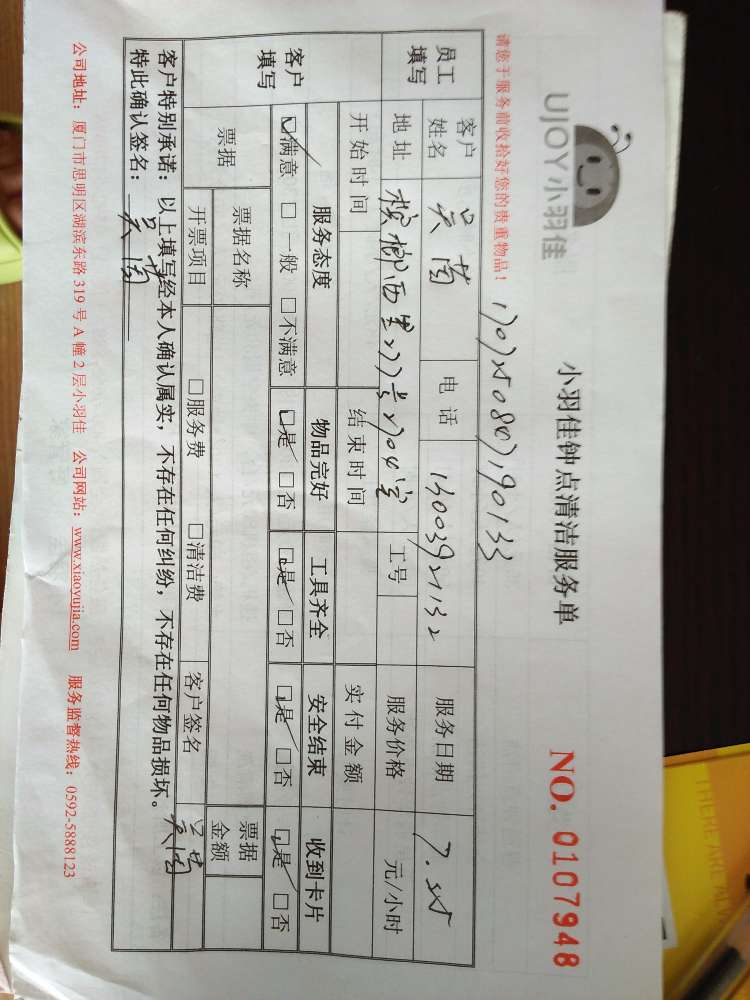 UJOY小羽佳
小羽佳钟点清洁服务单
NO. 0107948
请您于服务前收拾好您的贵重物品！
1707250807190133
员工填写 客户姓名 吴茵 电话 13003921132 服务日期 7.25
地址 槟榔西里277号2704室 工号 服务价格 元/小时
开始时间 结束时间 实付金额
客户填写 服务态度 物品完好 工具齐全 安全结束 收到卡片
☑满意 □一般 □不满意 ☑是 □否 ☑是 □否 ☑是 □否 ☑是 □否
票据 票据名称 票据金额
开票项目 □服务费 □清洁费 客户签名 吴茵
客户特别承诺：以上填写经本人确认属实，不存在任何纠纷，不存在任何物品损坏。
特此确认签名：吴茵
公司地址：厦门市思明区湖滨东路 319 号 A 幢 2 层小羽佳 公司网站：www.xiaoyujia.com 服务监督热线：0592-5888123
THERE ARE ALWA